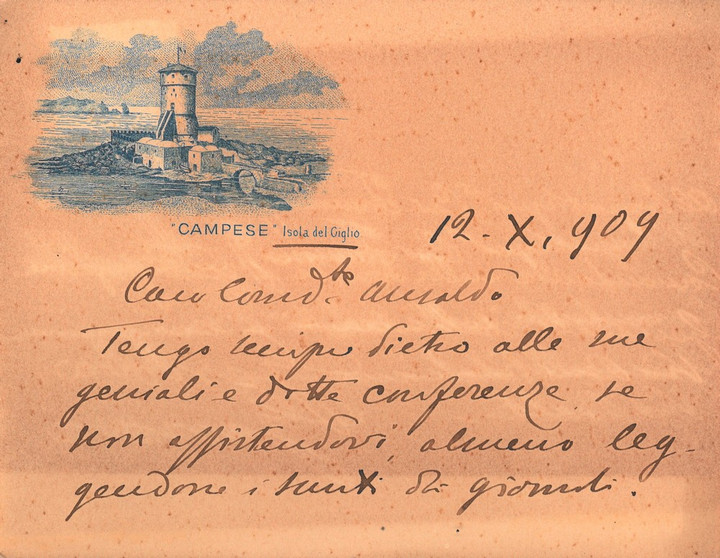 "CAMPESE" Isola del Giglio
12-X, 909
Caro Comdte Ansaldo
Tengo sempre dietro alle sue
geniali e dotte conferenze se
non assistendovi, almeno leg-
gendone i sunti da giornali.